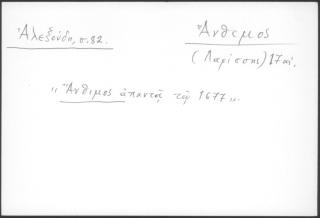 Ἀλεξούδη, σ. 82.
Ἄνθιμος
(Λαρίσσης) 17 αἰ.
„Ἄνθιμος ἀπαντᾷ τῷ 1677".